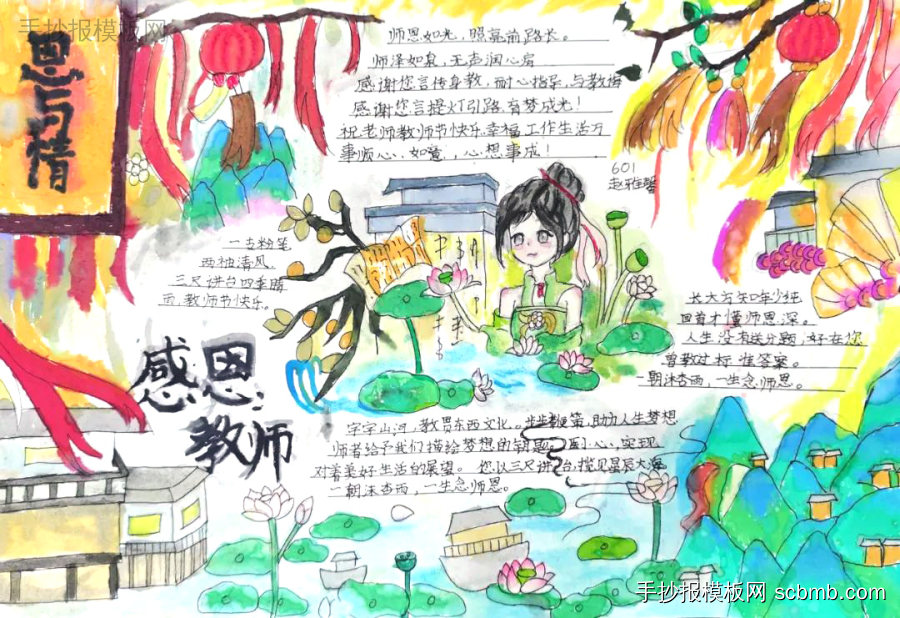 手抄报模板网
恩与情
师恩如光，照亮前路长。
师泽如泉，无声润心房
感谢您言传身教，耐心指导，与教悔
感谢您言提灯引路，育梦成光！
祝老师教师节快乐，幸福，工作生活万
事顺心，如意，心想事成！
601
赵雅馨
一支粉笔
两袖清风
三尺讲台四季晴
雨，教师节快乐。
长大方知年少狂
回首才懂师恩深。
人生没有送分题，好在您
曾教过标准答案。
一朝沐杏雨，一生念师恩。
感恩
教师
字字山河，教贯东西文化。助力人生梦想
师者给予我们描绘梦想的
对着美好生活的展望。您以三尺讲台，揽见星辰大海
一朝沐杏雨，一生念师恩。
手抄报模板网 scbmb.com